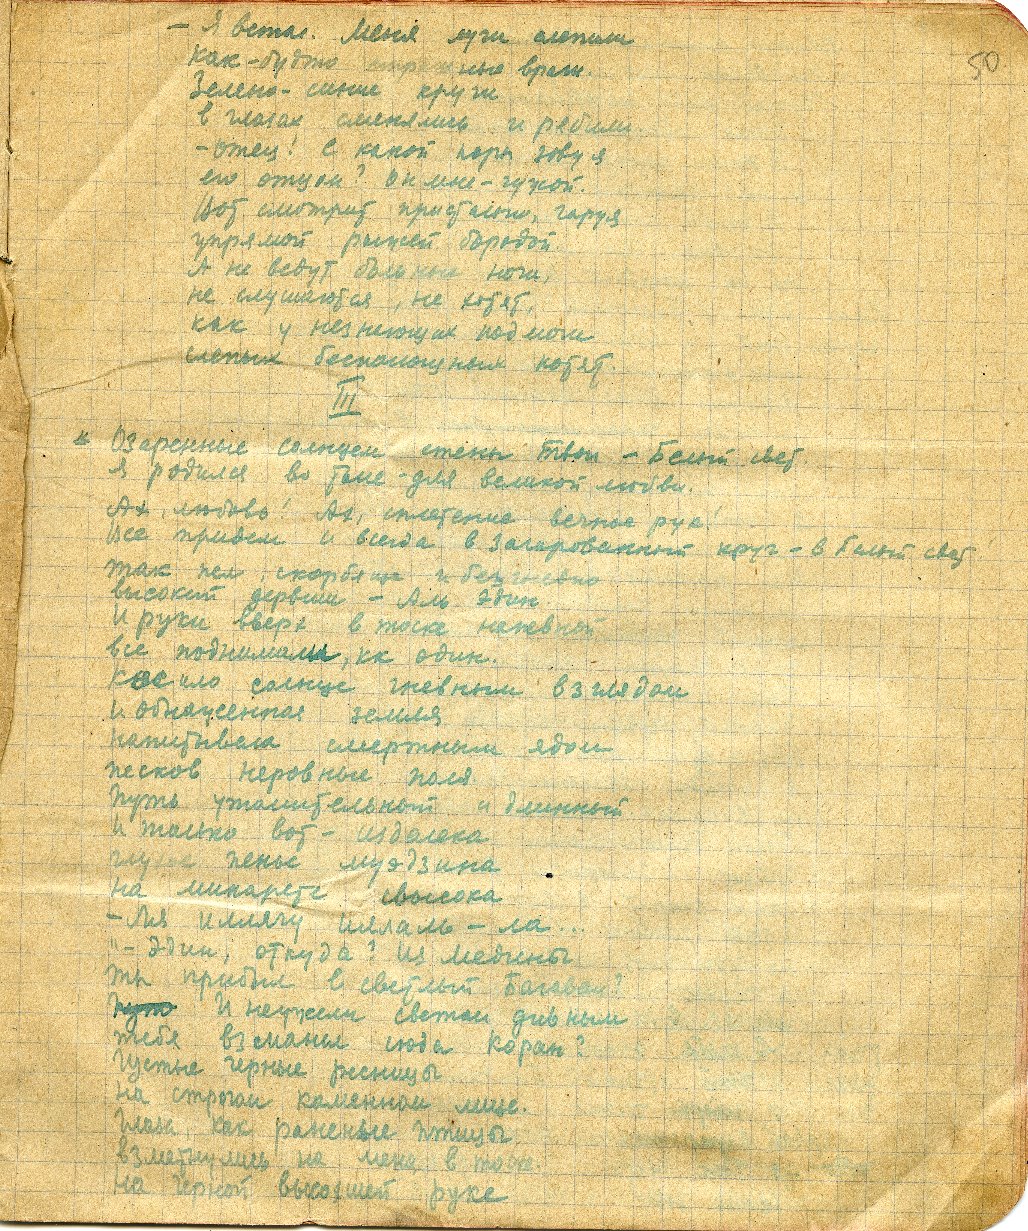 50
– Я встал. Меня лучи слепили
как-будто враги.
Зелено-синие круги
в глазах сменялись и рябили.
– Отец! С какой поры зову я
его отцом? Он мне – чужой.
Вот смотрит пристально, чаруя
упрямой рыжей бородой
А не ведут больные ноги,
не слушаются, не хотят,
как у незнающих подмоги
слепых беспомощных котят.
III
* Озаренные солнцем стены Твои – Белый свет.
Я родился во тьме – для великой любви.
Ах, любовь! Ах, сплетение вечное рук!
Все придем и всегда в Зачарованный круг – в белый свет
Так пел скорбяще и безгневно
высокий дервиш – Аль Эдин.
И руки вверх в тоске напевной
все поднимали, кк один.
Косило солнце гневным взглядом
и обнаженная земля
напитывала смертным ядом
песков неровные поля
Путь утомительный и длинный
и только вот – издалека
глухое пенье муэдзина
на минарете свысока
– Ля иллягу илляль – ла...
"– Эдин, откуда? Из Медины
ты прибыл в светлый Багаван?
Путь И неужели светом дивным
тебя взманил сюда Коран?
Густые черные ресницы
на строгом каменном лице.
Глаза, как раненые птицы
взметнулись на меня в тоске.
на черной высохшей руке